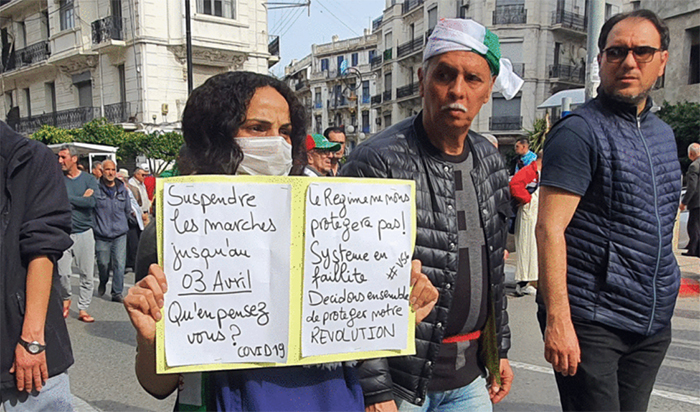 Suspendre
les marches
jusqu'au
03 Avril
Qu'en pensez
vous?
COVID19
Le Régime ne nous
protègera pas!
Système en
faillite
Decidons ensemble
de protéger notre
REVOLUTION